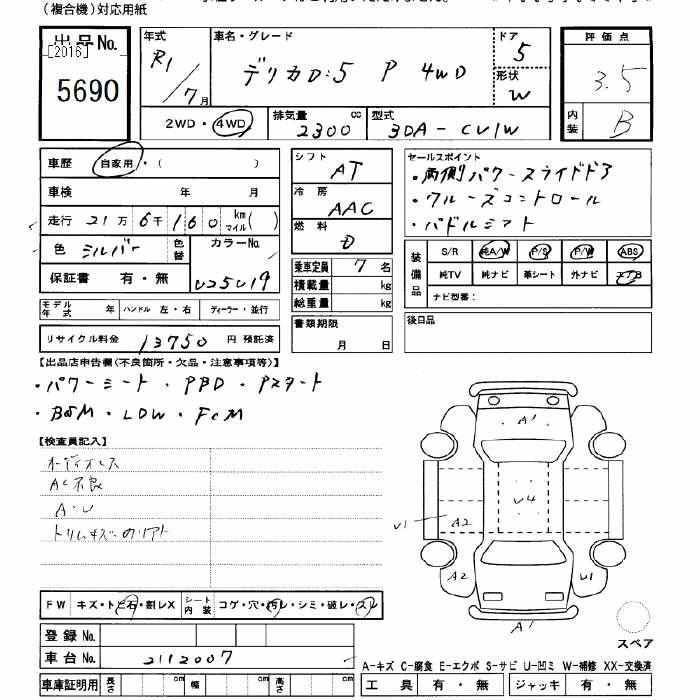 (複合機)対応用紙
出品No.
[2016]
5690
年式
R1/7月
車名・グレード
デリカD:5 P 4WD
ドア
5
形状
W
評価点
3.5
内装
B
2WD・4WD
排気量
2300 cc
型式
3DA-CV1W
車歴 自家用・( )
車検 年 月
走行 21万6千160 km マイル( )
色 シルバー 色替
カラーNo.
U25U19
保証書 有・無
シフト
AT
冷房
AAC
燃料
D
乗車定員 7名
積載量 kg
総重量 kg
書類期限
月 日
セールスポイント
・両側パワースライドドア
・クルーズコントロール
・パドルシフト
装備品
S/R 純A/W P/S P/W ABS
純TV 純ナビ 革シート 外ナビ エアB
ナビ型番:
後日品
モデル年式 年 ハンドル 左・右 ディーラー・並行
リサイクル料金 13750 円 預託済
【出品店申告欄(不良箇所・欠品・注意事項等)】
・パワーシート ・PBD ・Pスタート
・BSM ・LDW ・FCM
【検査員記入】
オーディオレス
AC不良
A・U
トリムキズ のリアト
A1
U4
U1 A2
A2 U1
A1
スペア
FW キズ・トビ石・割レX シート内装 コゲ・穴・汚レ・シミ・破レ・スレ
登録No.
車台No. 2112007
車庫証明用 長さ cm 幅 cm 高さ cm
A-キズ C-腐食 E-エクボ S-サビ U-凹ミ W-補修 XX-交換済
工具 有・無 ジャッキ 有・無